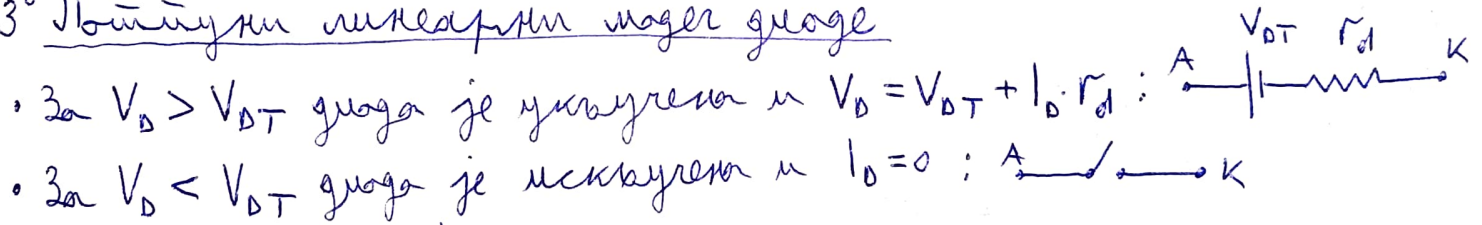 3° Потпуни линеарни модел диоде
• За V_D > V_DT диода је укључена и V_D = V_DT + I_D · r_d ; A V_DT r_d K
• За V_D < V_DT диода је искључена и I_D = 0 ; A K